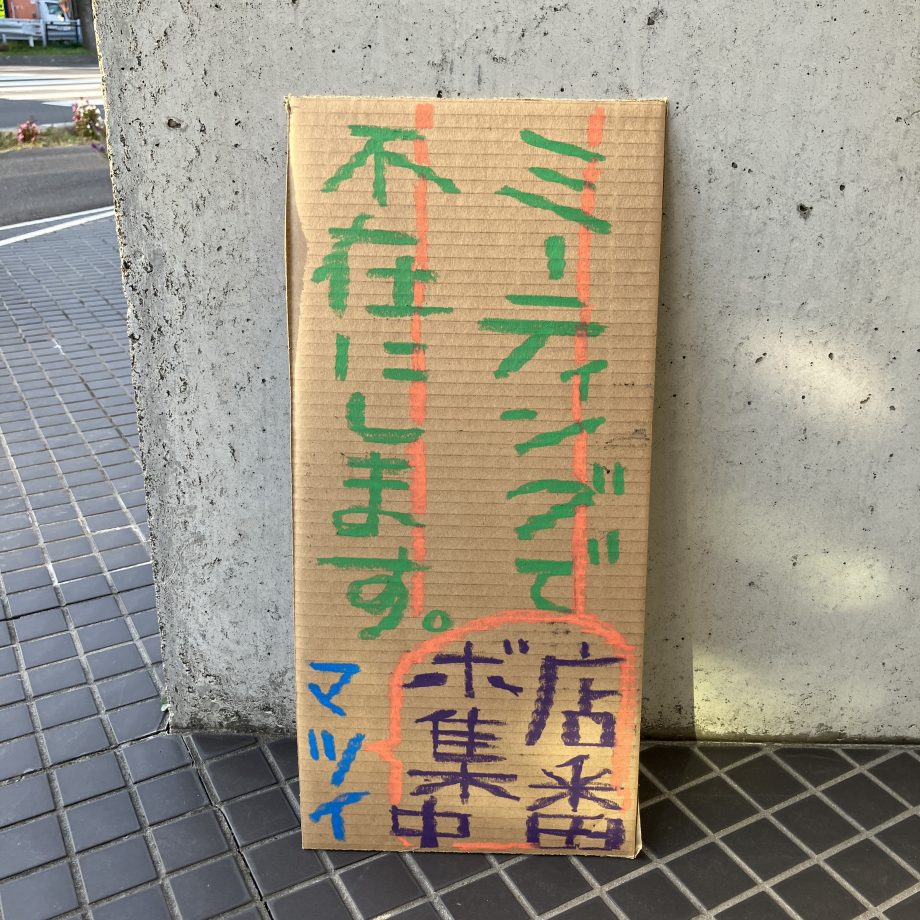 ミーティングで
不在にします。
店番
ボ集中
マツイ